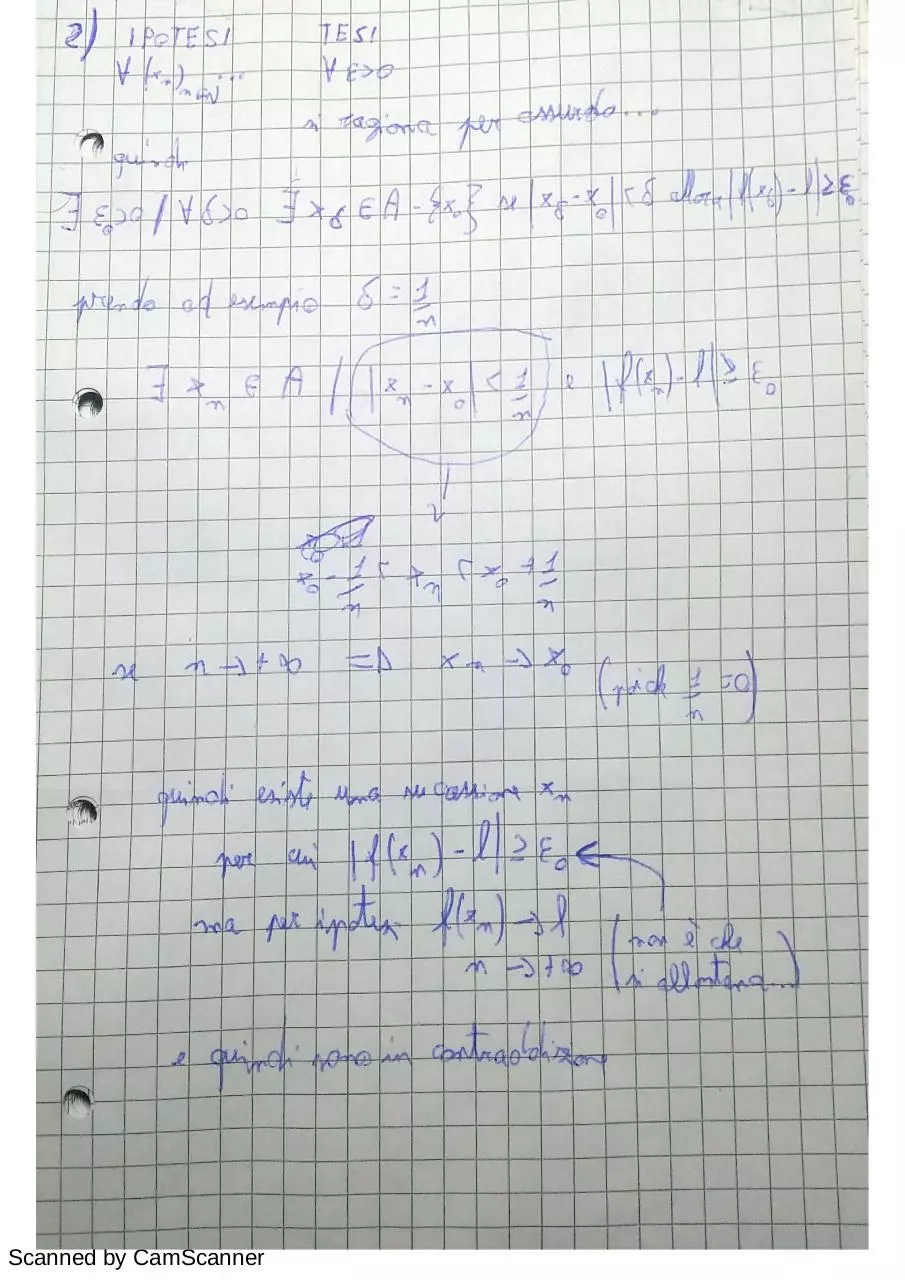 2) IPOTESI TESI
∀ (xₙ)ₙ∈ℕ ... ∀ ε>0
si ragiona per assurdo...
quindi
∃ ε₀>0 / ∀δ>0 ∃ x_δ ∈ A - {x₀} se |x_δ - x₀| < δ allora |f(x_δ) - l| ≥ ε₀
prendo ad esempio δ = 1/n
∃ xₙ ∈ A / |xₙ - x₀| < 1/n e |f(xₙ) - l| ≥ ε₀
x₀ - 1/n < xₙ < x₀ + 1/n
se n → +∞ ⇒ xₙ → x₀ (poiché 1/n = 0)
quindi esiste una successione xₙ
per cui |f(xₙ) - l| ≥ ε₀
ma per ipotesi f(xₙ) → l (non è che
n → +∞ si allontana...)
e quindi sono in contraddizione
Scanned by CamScanner